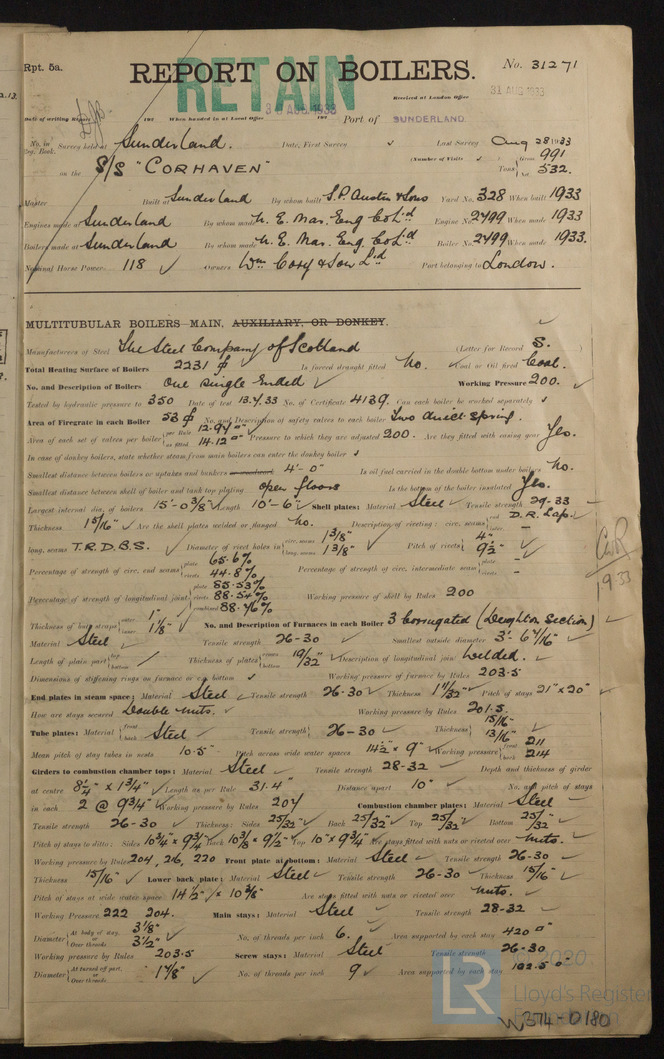 Rpt. 5a.
REPORT ON BOILERS.
No. 31271
RETAIN
31 AUG 1933
Received at London Office
Date of writing Report 19 When handed in at Local Office 19 Port of SUNDERLAND
No. in Reg. Book. Survey held at Sunderland. Date, First Survey ✓ Last Survey Aug 28 1933
(Number of Visits ✓) Gross 991
on the S/S "CORHAVEN" Tons Net 532.
Master Built at Sunderland By whom built S.P. Austin & Sons Yard No. 328 When built 1933
Engines made at Sunderland By whom made N. E. Mar. Eng Co Ltd Engine No. 2499 When made 1933
Boilers made at Sunderland By whom made N. E. Mar. Eng Co Ltd Boiler No. 2499 When made 1933.
Nominal Horse Power 118 ✓ Owners Wm Cory & Son Ltd Port belonging to London.
MULTITUBULAR BOILERS—MAIN, AUXILIARY, OR DONKEY.
Manufacturers of Steel The Steel Company of Scotland (Letter for Record S.)
Total Heating Surface of Boilers 2231 ft Is forced draught fitted No. Coal or Oil fired Coal.
No. and Description of Boilers One Single Ended ✓ Working Pressure 200.
Tested by hydraulic pressure to 350 Date of test 13.4.33 No. of Certificate 4139. Can each boiler be worked separately ✓
Area of Firegrate in each Boiler 53 ft No. and Description of safety valves to each boiler Two direct spring.
Area of each set of valves per boiler per Rule 12.97 □" as fitted 14.12 □" Pressure to which they are adjusted 200. Are they fitted with easing gear Yes.
In case of donkey boilers, state whether steam from main boilers can enter the donkey boiler ✓
Smallest distance between boilers or uptakes and bunkers 4'-0" Is oil fuel carried in the double bottom under boilers No.
Smallest distance between shell of boiler and tank top plating open floors Is the bottom of the boiler insulated Yes.
Largest internal dia. of boilers 15'-0 3/8" Length 10'-6" Shell plates: Material Steel Tensile strength 29-33
Thickness 1 5/16" Are the shell plates welded or flanged No. Description of riveting: circ. seams end D.R. Lap. inter. –
long. seams T.R.D.B.S. Diameter of rivet holes in circ. seams 1 3/8" long. seams 1 3/8" Pitch of rivets 4" 9 1/2"
Percentage of strength of circ. end seams plate 65.6% rivets 44.8% Percentage of strength of circ. intermediate seam plate – rivets –
Percentage of strength of longitudinal joint plate 85.53% rivets 88.54% combined 88.76% Working pressure of shell by Rules 200
Thickness of butt straps outer 1" inner 1 1/8" No. and Description of Furnaces in each Boiler 3 Corrugated (Deighton Section)
Material Steel Tensile strength 26-30 Smallest outside diameter 3'-6 7/16"
Length of plain part top bottom Thickness of plates crown bottom 19/32" Description of longitudinal joint Welded.
Dimensions of stiffening rings on furnace or c.c. bottom ✓ Working pressure of furnace by Rules 203.5
End plates in steam space: Material Steel Tensile strength 26-30 Thickness 1 11/32" Pitch of stays 21" x 20"
How are stays secured Double nuts. Working pressure by Rules 201.5.
Tube plates: Material front back Steel Tensile strength 26-30 Thickness 15/16" 13/16"
Mean pitch of stay tubes in nests 10.5" Pitch across wide water spaces 14 1/2" x 9" Working pressure front 211 back 214
Girders to combustion chamber tops: Material Steel Tensile strength 28-32 Depth and thickness of girder
at centre 8 1/4" x 1 3/4" Length as per Rule 31.4" Distance apart 10" No. and pitch of stays
in each 2 @ 9 3/4" Working pressure by Rules 204 Combustion chamber plates: Material Steel
Tensile strength 26-30 Thickness: Sides 25/32" Back 25/32" Top 25/32" Bottom 25/32"
Pitch of stays to ditto: Sides 10 3/4" x 9 3/4" Back 10 3/8" x 9 1/2" Top 10" x 9 3/4" Are stays fitted with nuts or riveted over Nuts.
Working pressure by Rules 204, 216, 220 Front plate at bottom: Material Steel Tensile strength 26-30
Thickness 15/16" Lower back plate: Material Steel Tensile strength 26-30 Thickness 15/16"
Pitch of stays at wide water space 14 1/2" x 10 3/8" Are stays fitted with nuts or riveted over nuts.
Working Pressure 222 204. Main stays: Material Steel Tensile strength 28-32
Diameter At body of stay, or Over threads 3 1/8" 3 1/2" No. of threads per inch 6. Area supported by each stay 420 □"
Working pressure by Rules 203.5 Screw stays: Material Steel Tensile strength 26-30
Diameter At turned off part, or Over threads 1 7/8" No. of threads per inch 9 Area supported by each stay 102.5 □"
© 2020
LR Lloyd's Register
Foundation
W374-0180